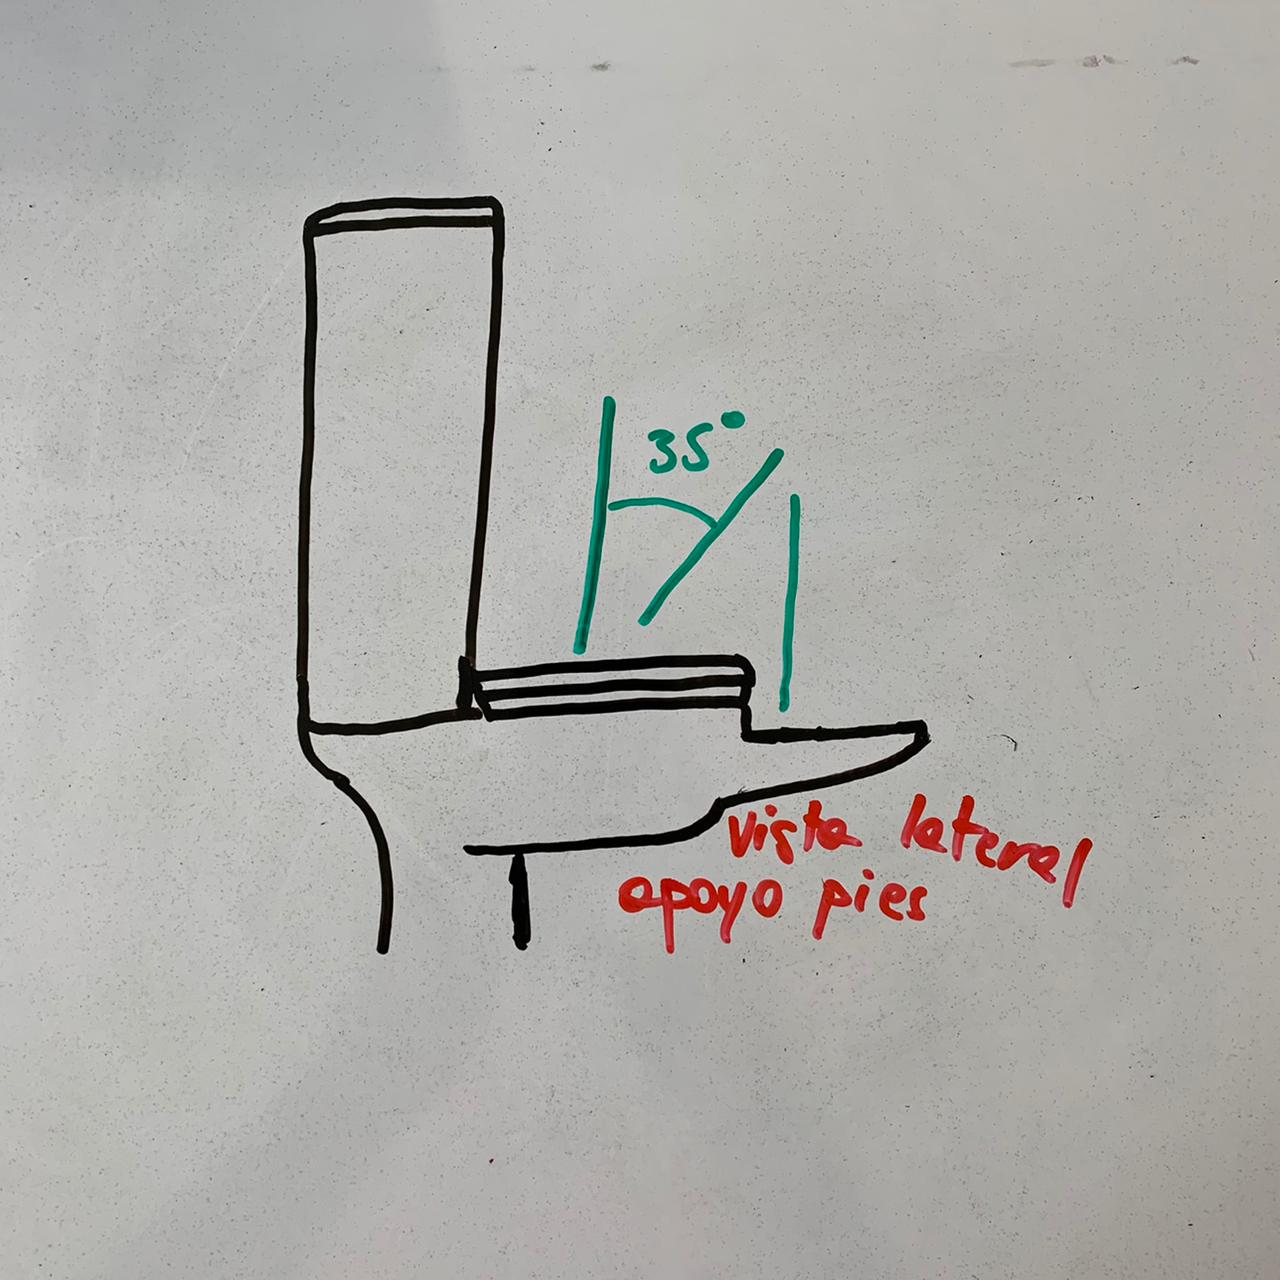 35°
vista lateral
apoyo pies